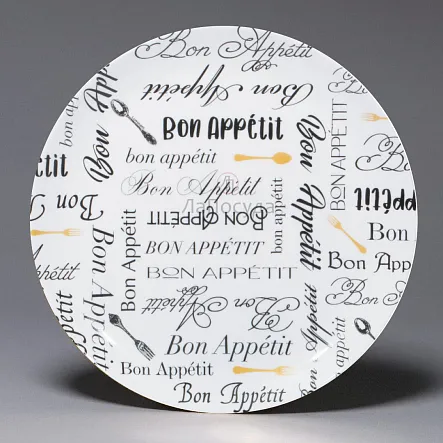 Bon Appétit
Bon Appétit
Bon Appétit
bon appétit
Bon Appétit
Ладосуда
BON APPÉTIT
BON APPÉTIT
BON APPÉTIT
Bon Appétit
Bon Appétit
Bon Appétit
Bon Appétit
Bon Appétit
bon app
Bon Appétit
Bon Appétit
bon appétit
Bon Appétit
BON APPÉTIT
Bon Appétit
Bon
ppétit
Bon
Bon App
Bo
tit
Bon
pétit